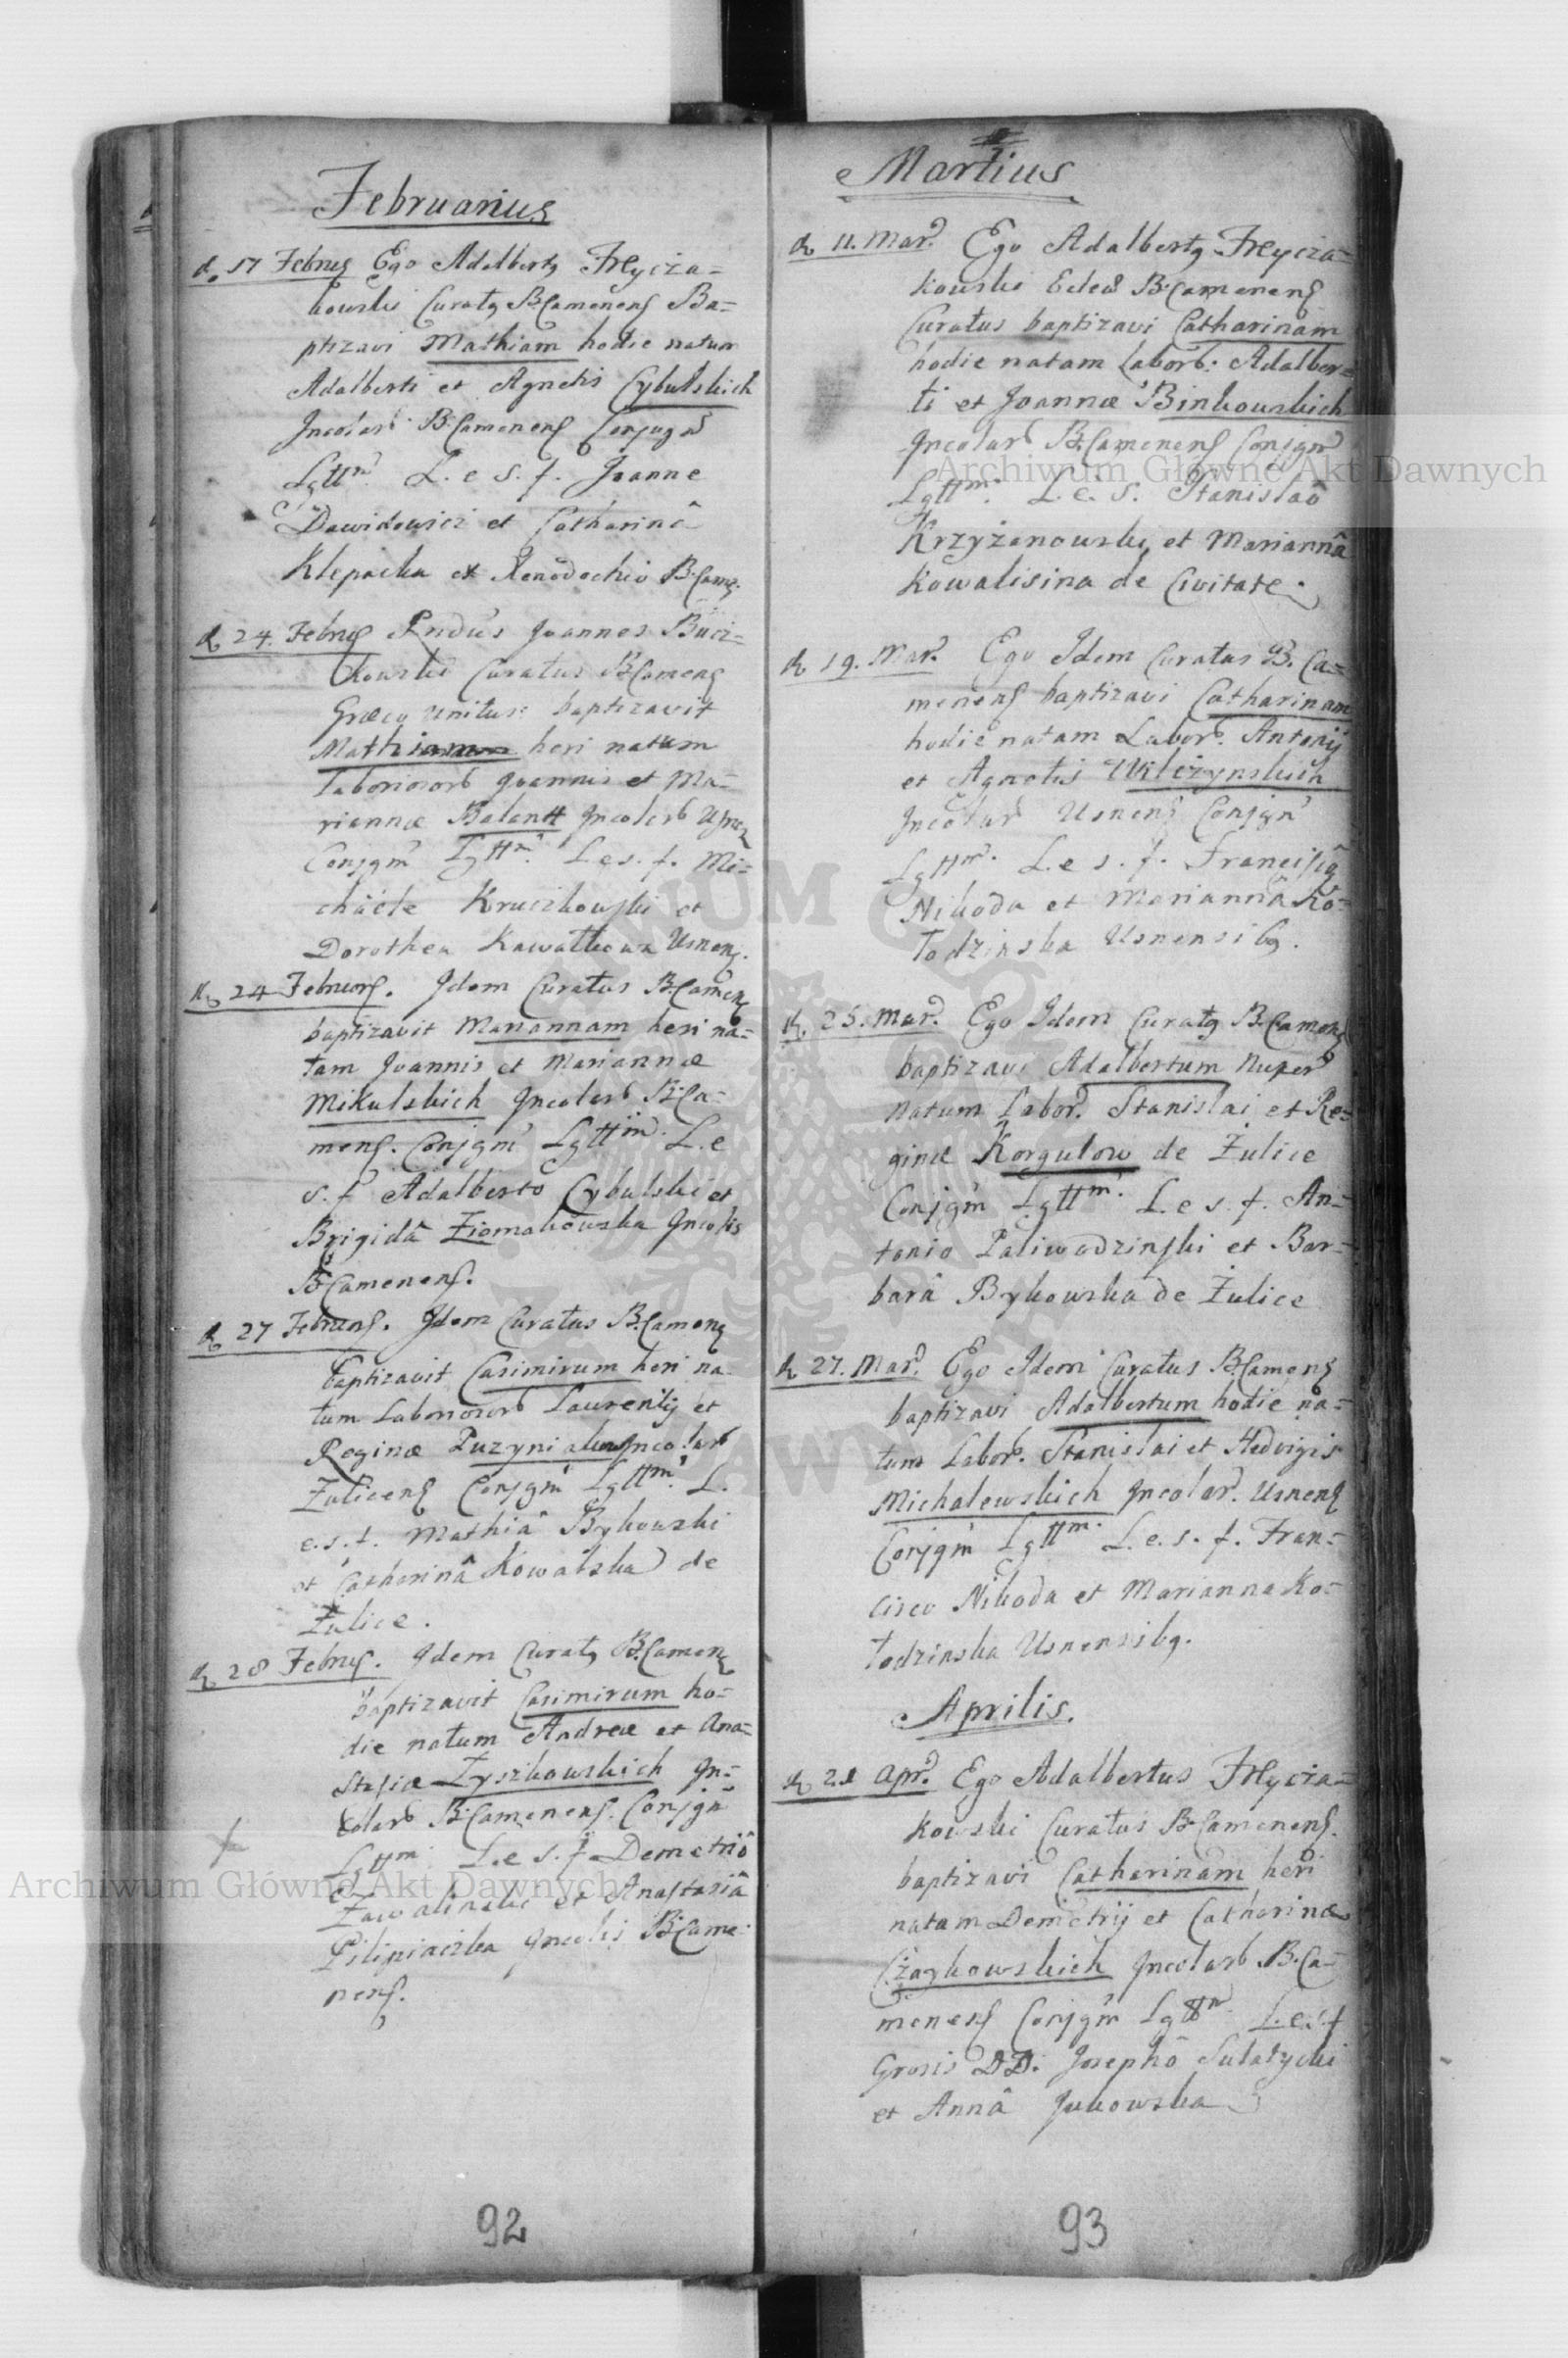 Februarius
d. 17 Februs Ego Adalberts Frycza=
kowski Curats B.Camenens Ba=
ptizavi Mathiam hodie natum
Adalberti et Agnetis Cybulskich
Incolarb B.Camenens Conjugm
Lgttm. L. e s. f. Joanne
Dawidowicz et Catharinâ
Klepacka ex Xenodochio B.Came.
d. 24. Februs Rndus Joannes
Curatus B.Camens
Græco Unitus baptizavit
Mathiam heri natum
Laboriosorb Joannis et Ma=
riannæ Balantt Incolarb Usnens
Conjgm Lgttm. L e s. f. Mi=
chaële Kruczkowski et
Dorothea Kawalkowa Usnens.
d. 24 Februars. Idem Curatus B.Camens
baptizavit Mariannam heri na=
tam Joannis et Mariannæ
Mikulskich Incolarb B.Ca=
mens. Conjgm Lgttm. L. e
s. f. Adalberto Cybulski et
Brigidâ Ziomakowska Incolis
B.Camenens.
d. 27 Februars. Idem Curatus B.Camens
baptizavit Casimirum heri na=
tum Laboriosorb Laurentij et
Reginæ Incolarb
Zulicens Conjgm Lgttm. L.
e. s. f. Mathiâ Bykowski
et Catharinâ Kowalska de
Żulice.
d. 28 Februs. Idem Curats B.Camens
baptizavit Casimirum ho=
die natum Andreæ et Ana=
stasiæ Łyszkowskich In=
colarb B.Camenens. Conjgm
Lgttm. L. e s. f. Demetriô
Zawalinski et Anastasiâ
Pilipiaczka Incolis B.Came=
nens.
92
Martius
d. 11. Mar. Ego Adalberts Frycza=
kowski Ecles B.Camenens
Curatus baptizavi Catharinam
hodie natam Laborb. Adalber=
ti et Joannæ Binkowskich
Incolarb B.Camenens Conjgm
Lgttm. L. e. s. Stanislaô
Krzyżanowski et Mariannâ
Kowalisina de Civitate.
d. 19. Mar. Ego Idem Curatus B. Ca=
menens baptizavi Catharinam
hodie natam Laborb. Antonij
et Agnetis Wilczynskich
Incolarb Usnens Conjgm
Lgttm. L. e s. f. Francisco
Nikoda et Mariannâ Ko=
łodzinska Usnensibs.
d. 25. Mar. Ego Idem Curats B.Camens
baptizavi Adalbertum nuper
natum Labor. Stanislai et Re=
ginæ Korgulow de Żulice
Conjgm Lgttm. L. e s. f. An=
tonio Paliwodzinski et Bar=
barâ Bykowska de Żulice
d. 27. Mar. Ego Idem Curatus B.Camens
baptizavi Adalbertum hodie na=
tum Labor. Stanislai et Hedvigis
Michalewskich Incolar. Usnens
Conjgm Lgttm. L. e. s. f. Fran=
cisco Nikoda et Marianna Ko=
łodzinska Usnensibs.
Aprilis.
d. 21 Apr. Ego Adalbertus Frycza=
kowski Curatus B.Camenens.
baptizavi Catharinam heri
natam Demetrij et Catharinæ
Czaykowskich Incolarb B.Ca=
menens Conjgm Lgttm. L. e s. f
Grosis DD. Josephô Sulatycki
et Annâ Jukowska
93
Archiwum Główne Akt Dawnych
Archiwum Główne Akt Dawnych